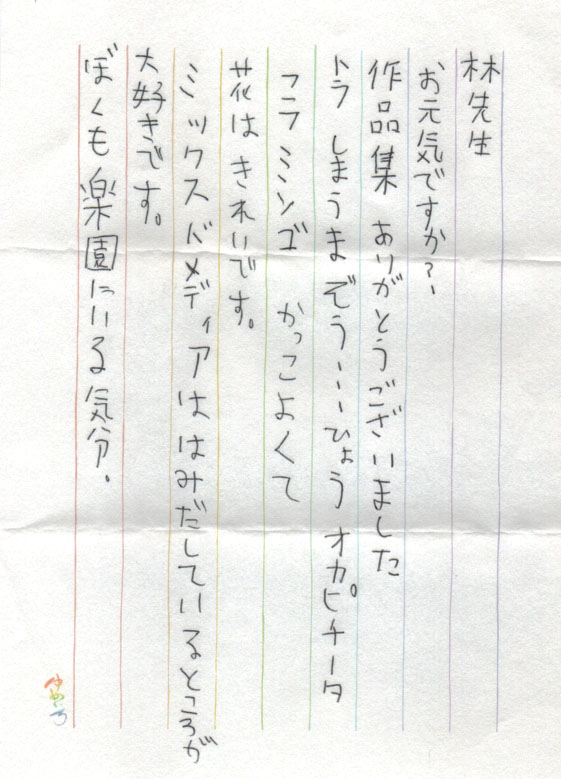 林先生
お元気ですか？
作品集 ありがとうございました
トラ しまうま ぞう・・・ひょう オカピ チータ
フラミンゴ かっこよくて
花は きれいです。
ミックスドメディアは はみだしているところが
大好きです。
ぼくも楽園にいる気分。